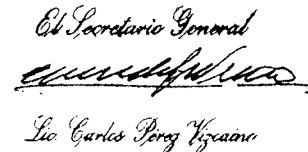 El Secretario General
Lic. Carlos Pérez Vizcaíno